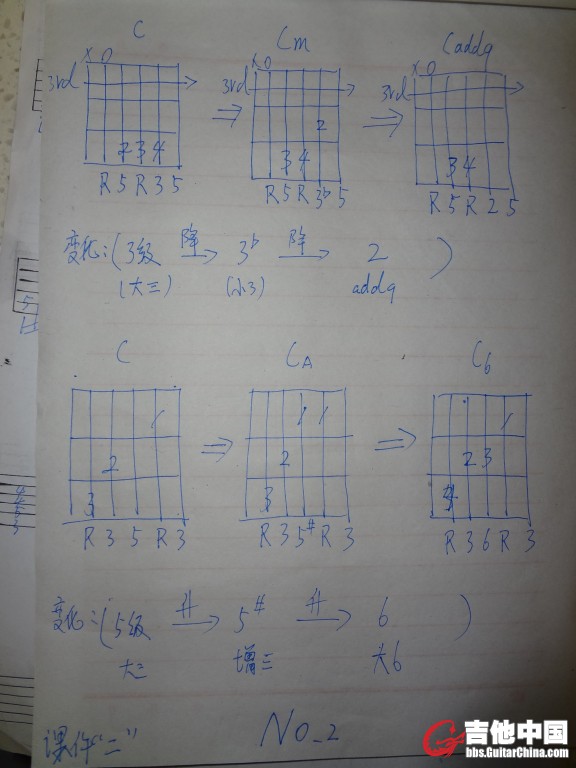 C Cm Cadd9
X O X O X O
3rd 3rd 3rd
2
2 3 4 ⇒ 3 4 ⇒ 3 4
R 5 R 3 5 R 5 R 3b 5 R 5 R 2 5
变化:(3级 降→ 3b 降→ 2 )
(大三) (小3) add9
C CA C6
1 1 1 1
2 ⇒ 2 ⇒ 2 3
3 3
R 3 5 R 3 R 3 5# R 3 R 3 6 R 3
变化:(5级 升→ 5# 升→ 6 )
大三 增三 大6
课件"二" NO_2
吉他中国
bbs.GuitarChina.com